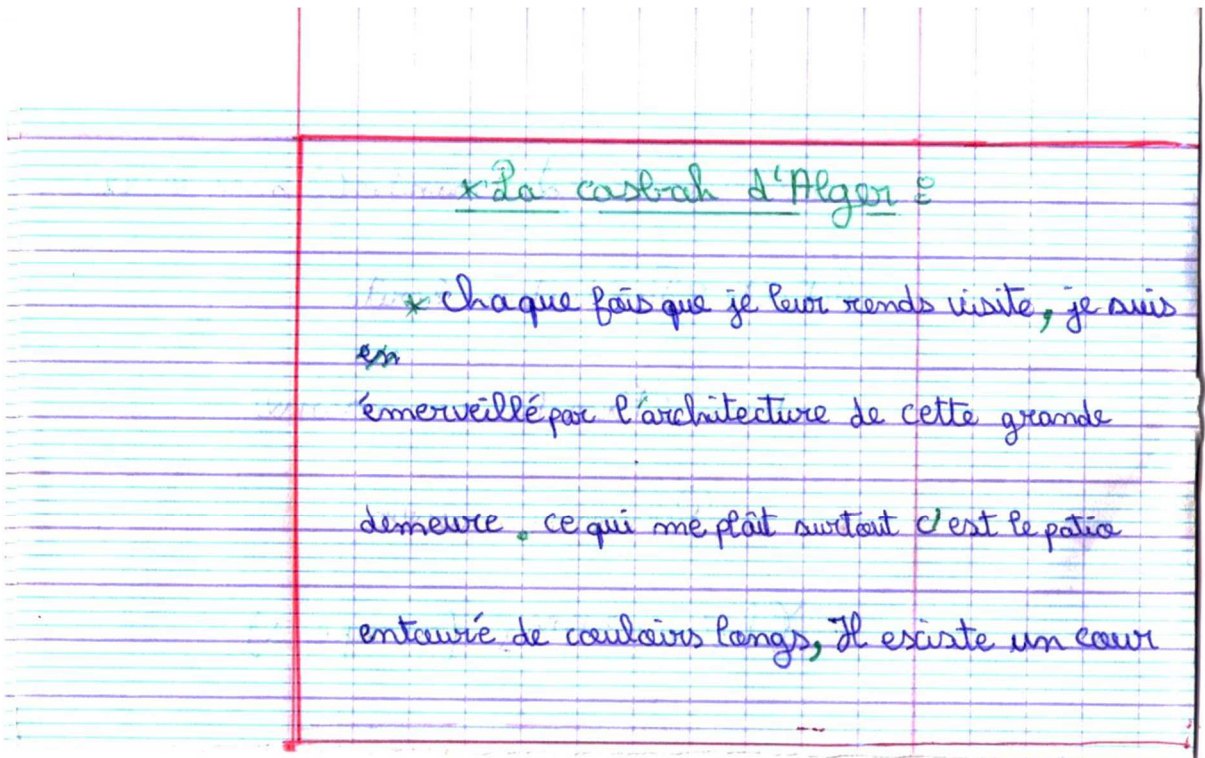 *La casbah d'Alger :
* Chaque fois que je leur rends visite, je suis
en
émerveillé par l'architecture de cette grande
demeure. ce qui me plaît surtout c'est le patio
entouré de couloirs longs, Il existe un cour